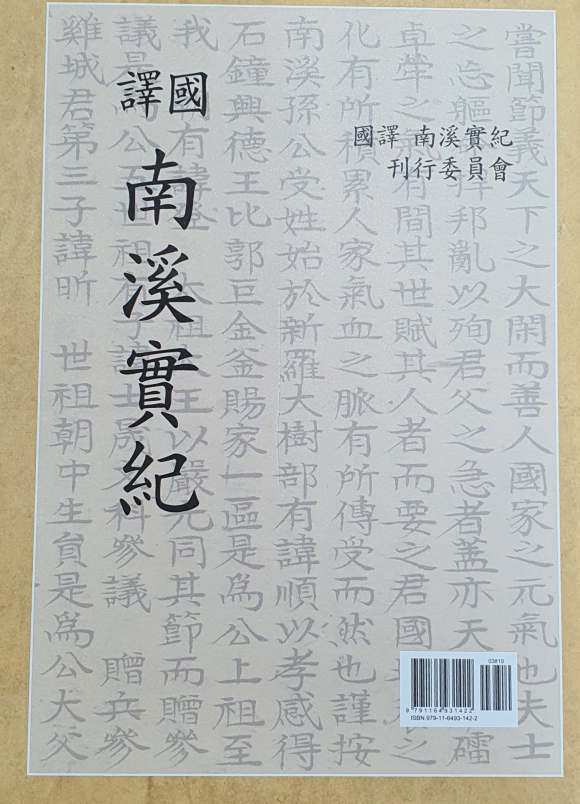 國譯
南溪實紀
國譯 南溪實紀
刊行委員會
嘗聞節義天下之大閑而善人國家之元氣也夫士
之忘軀 邦亂以殉君父之急者盖亦天 礌
卓犖之 有間其世賦其人者而要之君國 之
化有所積累人家氣血之脈有所傳受而然也謹按
南溪孫公受姓始於新羅大樹部有諱順以孝感得
石鐘興德王比郭巨金釜賜家一區是爲公上祖至
我 有 王以嚴 同其節而贈參
議是 公 世祖 科參議 贈兵參
雞城君第三子諱昕 世祖朝中生員是爲公大父
03810
9 791164 931422
ISBN 979-11-6493-142-2